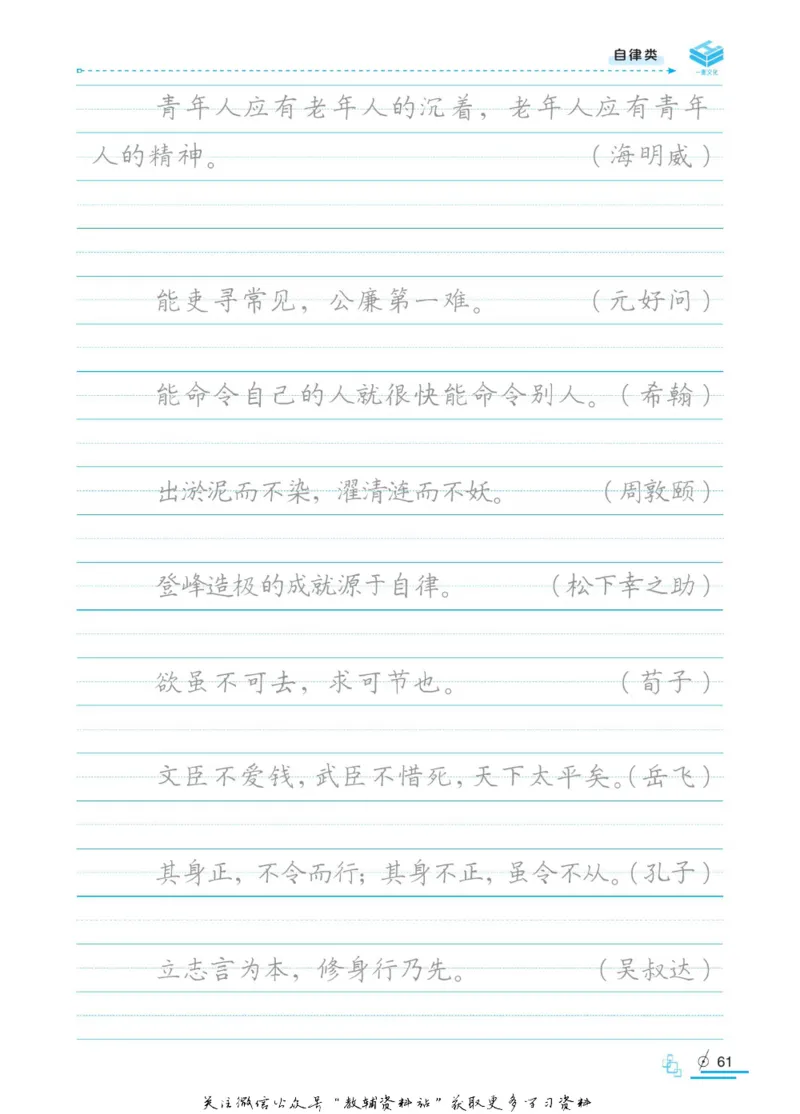 自律类
一鸣文化
青年人应有老年人的沉着，老年人应有青年
人的精神。（海明威）
能吏寻常见，公廉第一难。（元好问）
能命令自己的人就很快能命令别人。（希翰）
出淤泥而不染，濯清涟而不妖。（周敦颐）
登峰造极的成就源于自律。（松下幸之助）
欲虽不可去，求可节也。（荀子）
文臣不爱钱，武臣不惜死，天下太平矣。（岳飞）
其身正，不令而行；其身不正，虽令不从。（孔子）
立志言为本，修身行乃先。（吴叔达）
61
关注微信公众号“教辅资料站”获取更多学习资料